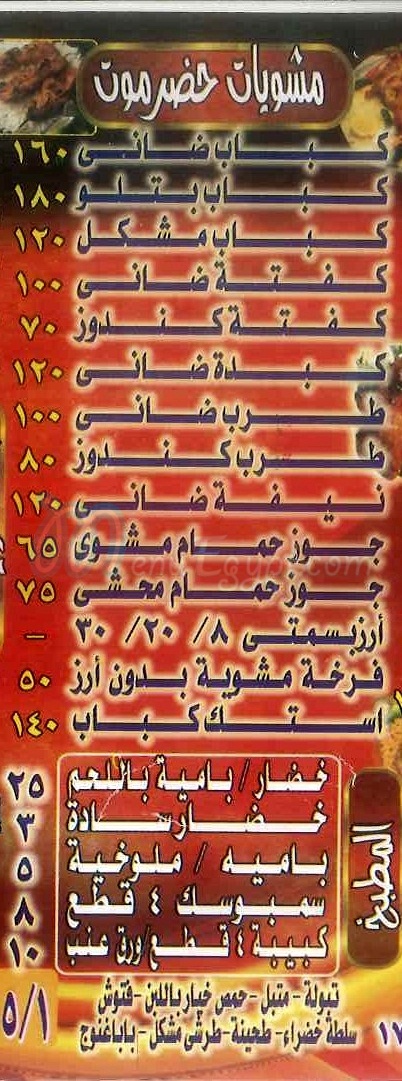 مشويات حضرموت
كباب ضانى ١٦٠
كباب بتلو ١٨٠
كباب مشكل ١٢٠
كفتة ضانى ١٠٠
كفتة كندوز ٧٠
كبدة ضانى ١٢٠
طرب ضانى ١٠٠
طرب كندوز ٨٠
نيفة ضانى ١٢٠
جوز حمام مشوى ٦٥
جوز حمام محشى ٧٥
أرز بسمتى ٨/ ٢٠/ ٣٠ –
فرخة مشوية بدون أرز ٥٠
استك كباب ١٤٠
المطبخ
خضار/ بامية باللحم ٢٥
خضار سادة ٣
باميه / ملوخية ٥
سمبوسك ٤ قطع ٨
كبيبة ٤ قطع/ورق عنب ١٠
تبولة - متبل - حمص خيار باللبن - فتوش
سلطة خضراء - طحينة - طرشى مشكل - باباغنوج
٥/١
١٧
MenuEgypt.com